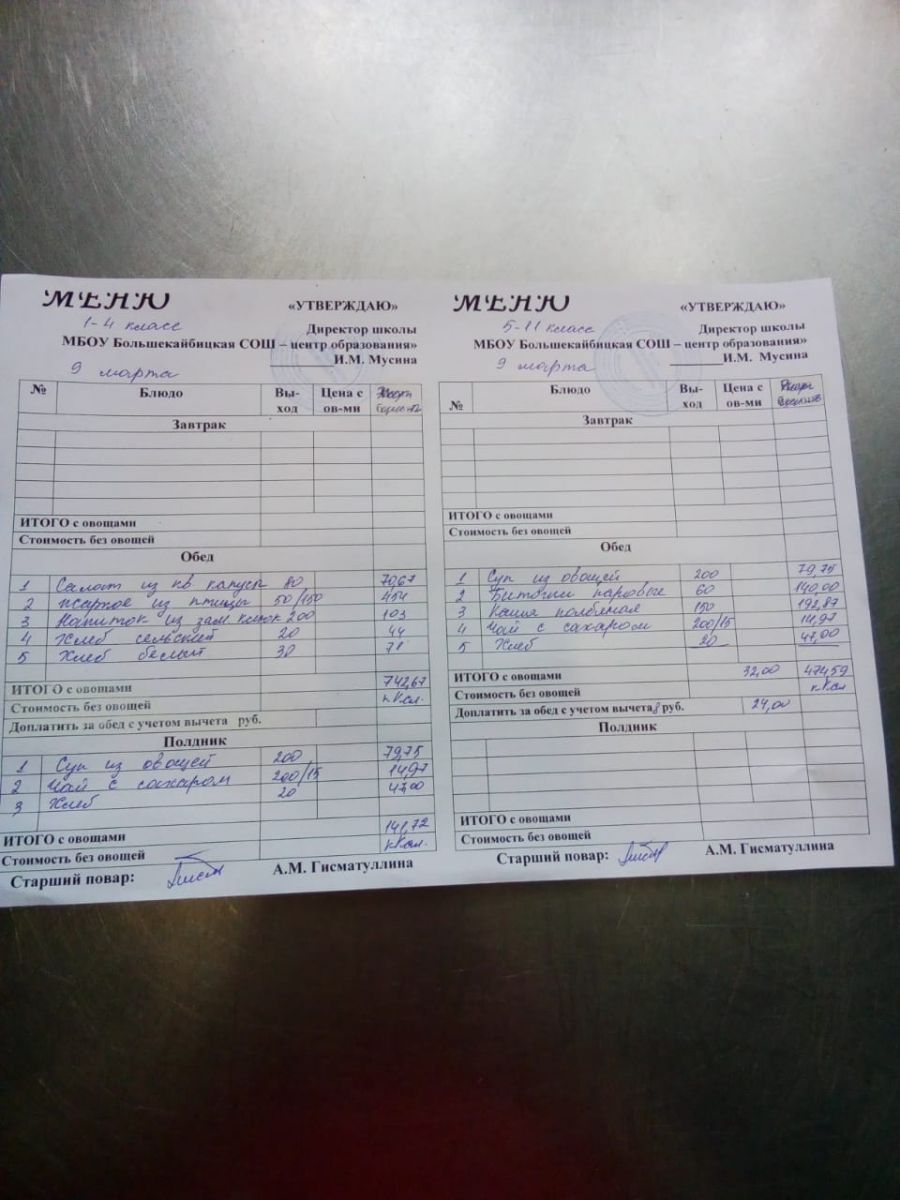 МЕНЮ
«УТВЕРЖДАЮ»
1-4 класс
Директор школы
МБОУ Большекайбицкая СОШ – центр образования»
И.М. Мусина
9 марта
№ Блюдо Вы-ход Цена с ов-ми
Завтрак
ИТОГО с овощами
Стоимость без овощей
Обед
1 Салат из кв капуст 80 70,67
2 жаркое из птицы 50/150 454
3 Напиток из зам. 200 103
4 Хлеб сельский 20 44
5 Хлеб белый 30 71
ИТОГО с овощами 742,67
Стоимость без овощей кКал.
Доплатить за обед с учетом вычета руб.
Полдник
1 Суп из овощей 200 79,75
2 Чай с сахаром 200/15 14,97
3 Хлеб 20 47,00
ИТОГО с овощами 141,72
Стоимость без овощей кКал.
Старший повар: А.М. Гисматуллина
МЕНЮ
«УТВЕРЖДАЮ»
5-11 класс
Директор школы
МБОУ Большекайбицкая СОШ – центр образования»
И.М. Мусина
9 марта
№ Блюдо Вы-ход Цена с ов-ми
Завтрак
ИТОГО с овощами
Стоимость без овощей
Обед
1 Суп из овощей 200 79,75
2 Биточки паровые 60 140,00
3 Каша полбяная 150 192,87
4 Чай с сахаром 200/15 14,97
5 Хлеб 20 47,00
ИТОГО с овощами 32,00 474,59
Стоимость без овощей кКал
Доплатить за обед с учетом вычета 8 руб. 24,00
Полдник
ИТОГО с овощами
Стоимость без овощей
Старший повар: А.М. Гисматуллина